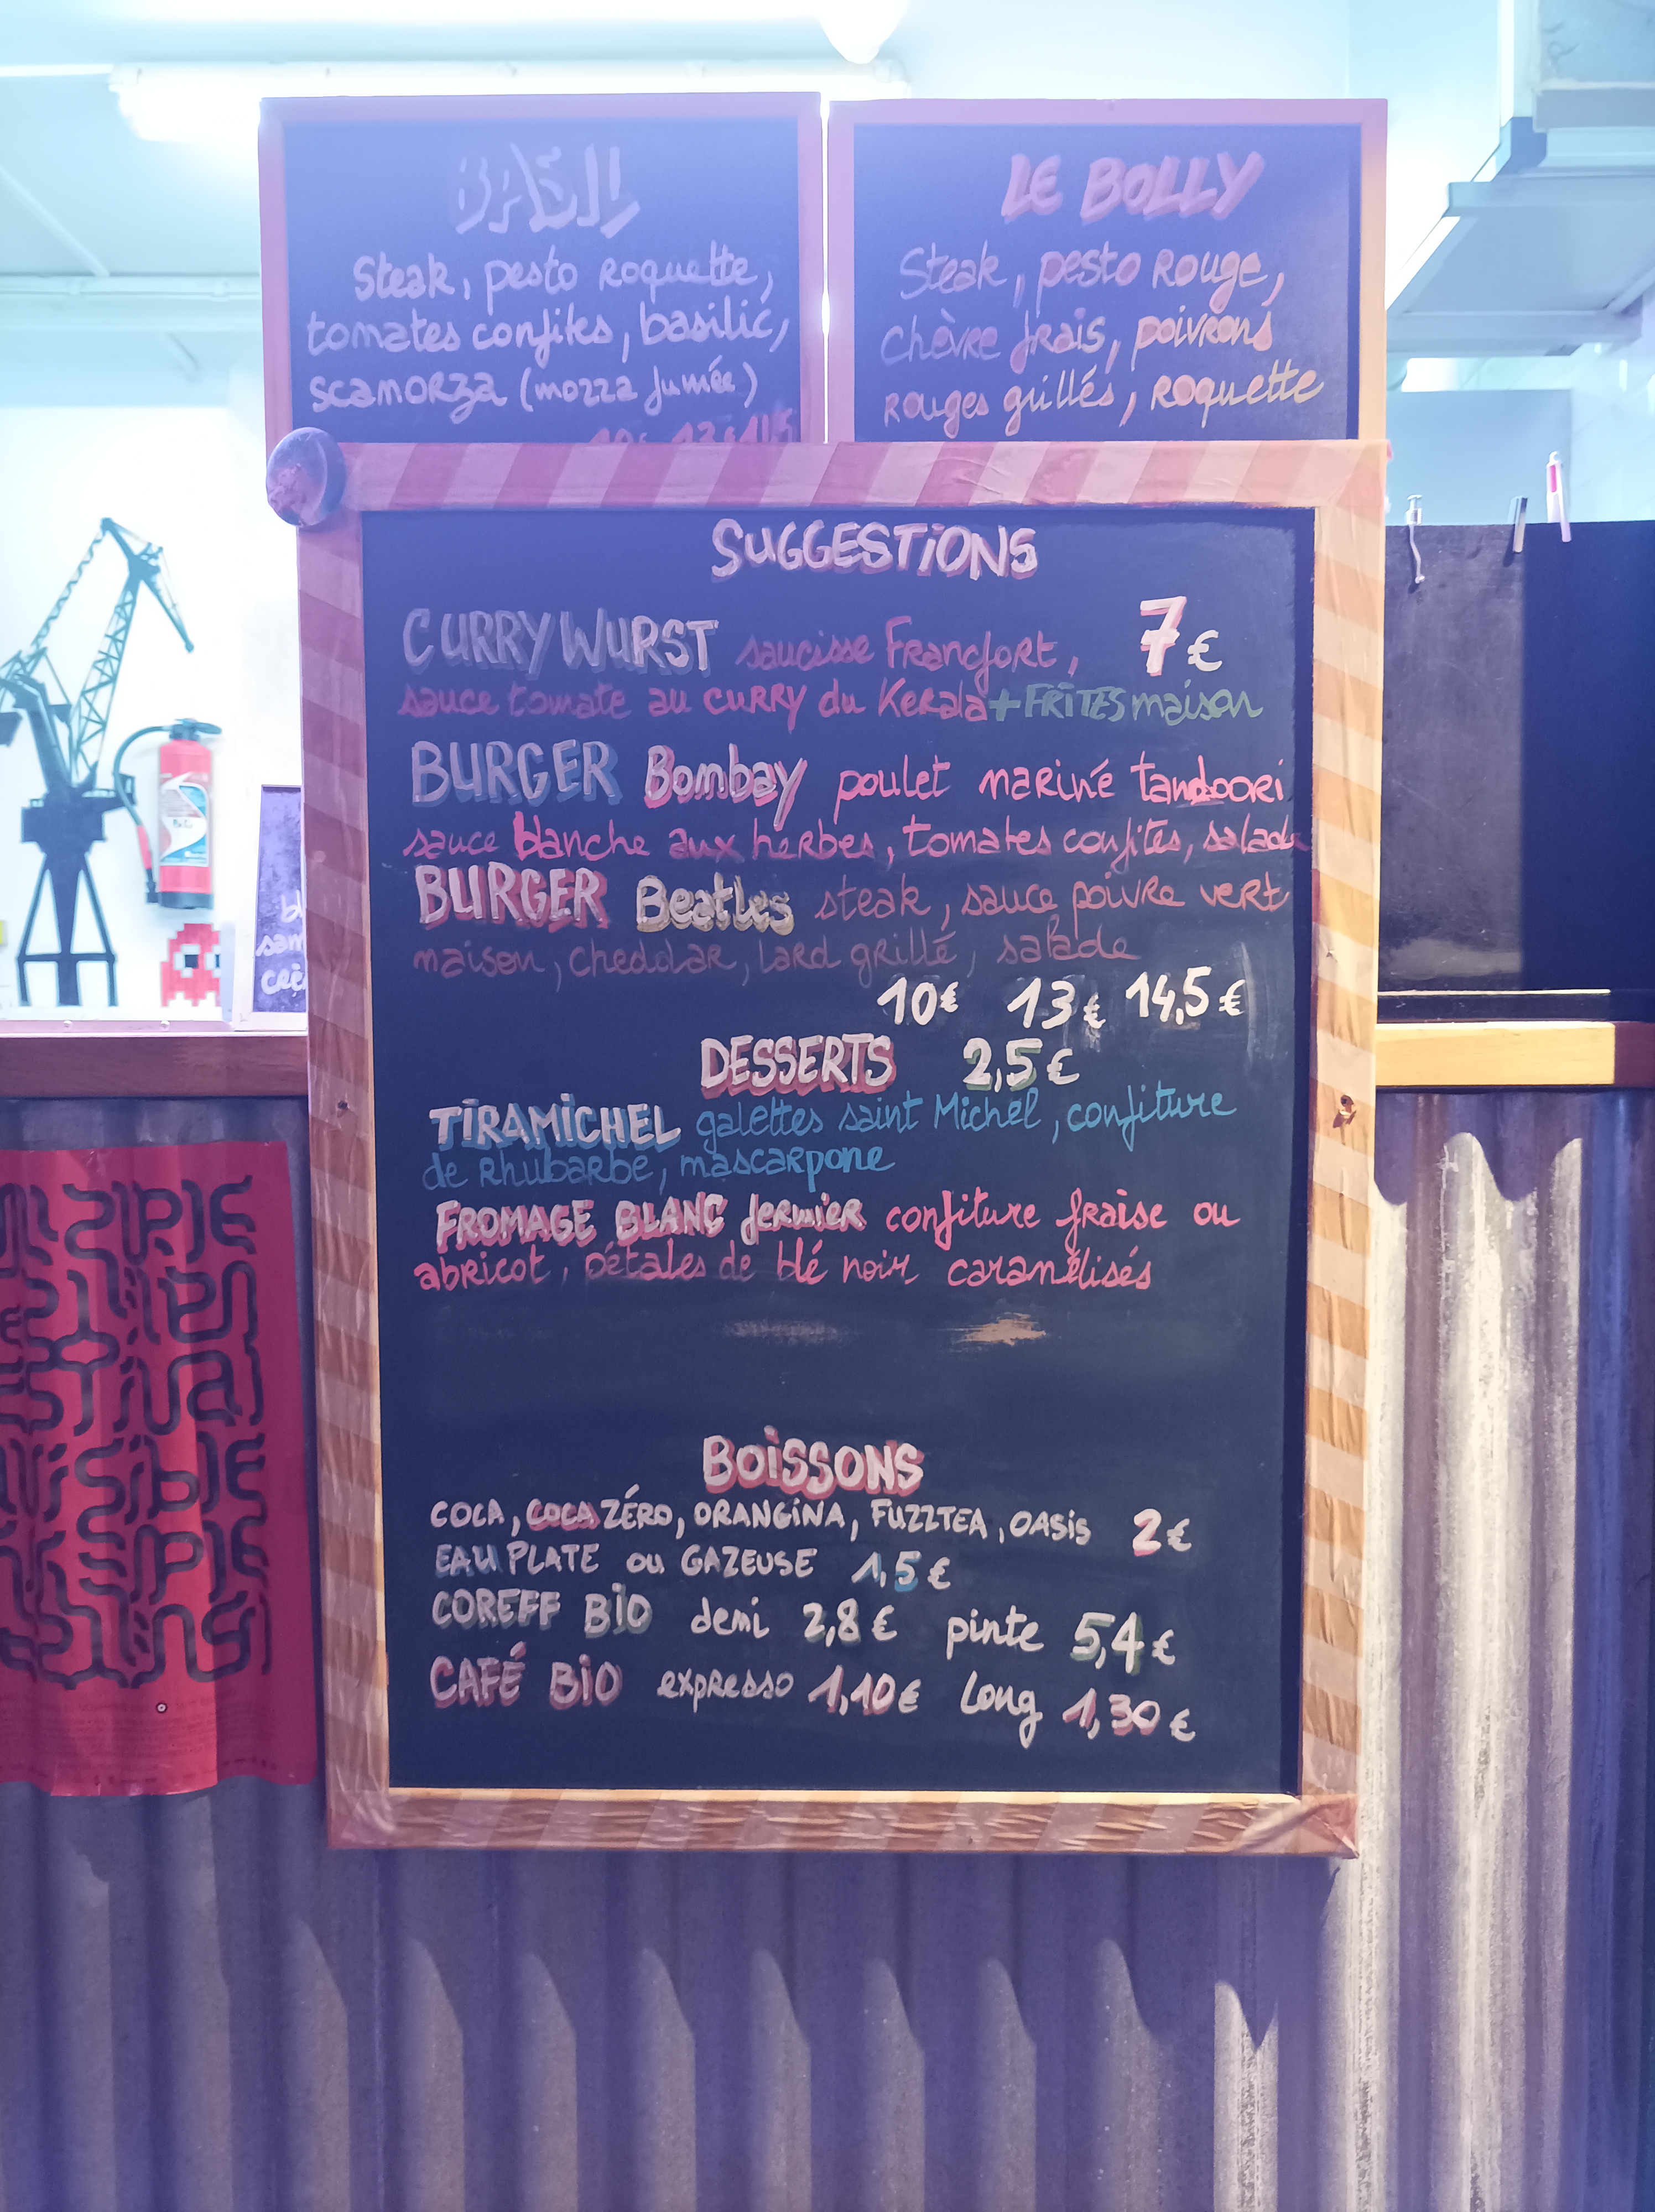 BASIL
Steak, pesto roquette,
tomates confites, basilic,
scamorza (mozza fumée)
LE BOLLY
Steak, pesto rouge,
chèvre frais, poivrons
rouges grillés, roquette
SUGGESTIONS
CURRY WURST saucisse Francfort, 7€
sauce tomate au curry du Kerala + FRITES maison
BURGER Bombay poulet mariné tandoori
sauce blanche aux herbes, tomates confites, salade
BURGER Beatles steak, sauce poivre vert
maison, cheddar, lard grillé, salade
10€ 13€ 14,5€
DESSERTS 2,5€
TIRAMICHEL galettes saint Michel, confiture
de rhubarbe, mascarpone
FROMAGE BLANC fermier confiture fraise ou
abricot, pétales de blé noir caramélisés
BOISSONS
COCA, COCA ZÉRO, ORANGINA, FUZZTEA, OASIS 2€
EAU PLATE ou GAZEUSE 1,5€
COREFF BIO demi 2,8€ pinte 5,4€
CAFÉ BIO expresso 1,10€ long 1,30€